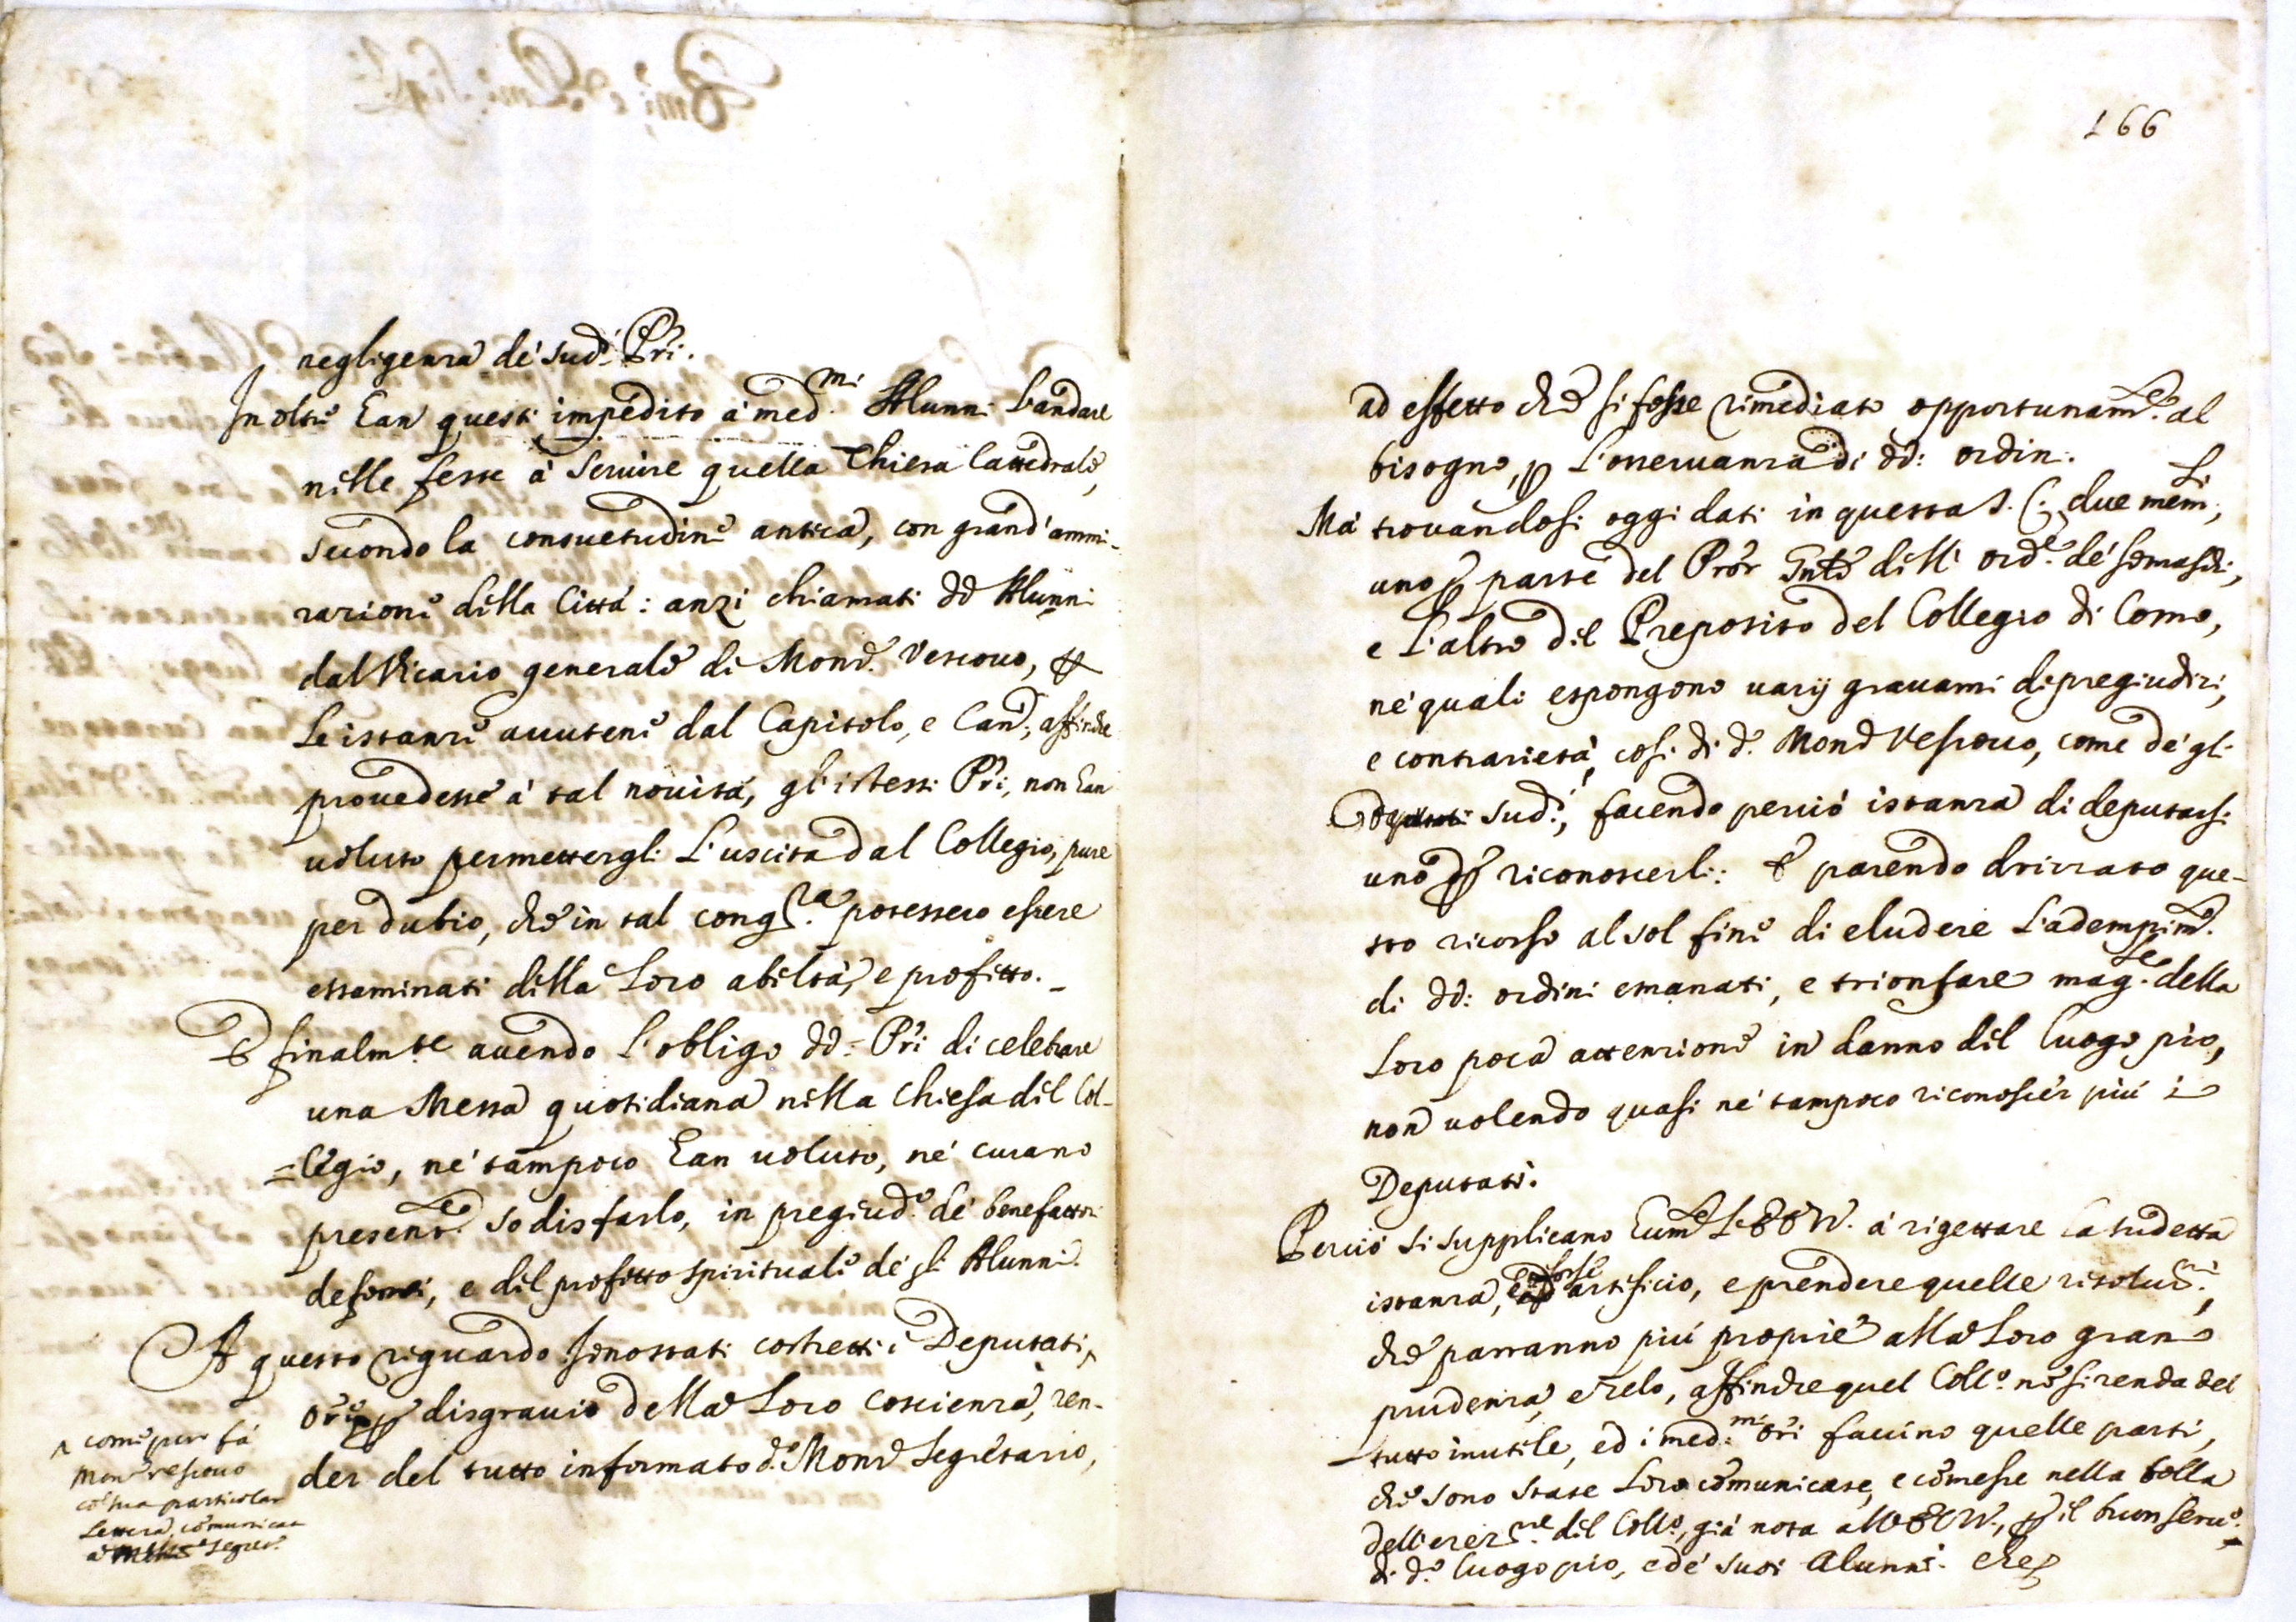 negligenza de' sud.i P̃ri.
In oltre han questi impedito à med.mi Alunni l'andare
nelle feste à seruire quella Chiesa Cattedrale,
secondo la consuetudine antica, con grand'ammi-
razione della Città: anzi chiamati dd Alunni
dal Vicario generale di Mons.r Vescouo, p
le istanze auutene dal Capitolo, e Can.ci, affinche
prouedesse à tal nouità, gl'istessi P̃ri, non han
uoluto permettergli l'uscita dal Collegio, pure
per dubio, che in tal cong.ra potessero essere
essaminati della loro abiltà, e profitto._
E finalm.te auendo l'obligo dd: P̃ri di celebrare
una Messa quotidiana nella Chiesa del Col-
=legio, ne' tampoco han uoluto, ne' curano
presentem.te sodisfarlo, in pregiud.o de' benefattori
defonti, e del profitto spirituale de gli Alunni.
A questo riguardo sono stati costretti i Deputati,
p disgrauio della loro coscienza, ren-
der del tutto informato d.o Mons.r Segretario,
^ come pur fà
Mons.r Vescouo
cõ sua particolar
lettera, cõmunicata
à Segret.
166
ad effetto che si fosse rimediato opportunam.te al
bisogno, p l'osseruanza di dd: ordini.
Mà trouandosi oggi dati in questa S. C: due mem.li,
uno p parte del P̃ror Gñle dell'ord.e de' Somaschi,
e l'altro del Preposito del Collegio di Como,
ne' quali espongono uarij grauami di pregiudizi,
e contrarietà, così di d.o Mons.r Vescouo, come de' gli
Deputati sud.i, facendo perciò istanza di deputarsi
uno p riconoscerli: E parendo drizzato que-
sto ricorso al sol fine di eludere l'adempim.to
di dd: ordini emanati, e trionfare mag.te della
loro poca attenzione in danno del luogo pio,
non uolendo quasi ne' tampoco riconoscer più i
Deputati.
Perciò si supplicano l'EE VV. à rigettare la sudetta
istanza, forse artificio, e prendere quelle risoluz.ni,
che parranno più proprie alla loro gran
prudenza, e zelo, affinche quel Coll.o nõ si renda del
tutto inutile, ed i med.mi P̃ri faccino quelle parti,
che sono state loro cõmunicate, e cõmesse nella bolla
dell'erez.ne del Coll.o, già nota all'EE VV., p il buon seru.o
di d.o luogo pio, e de' suoi Alunni. Che